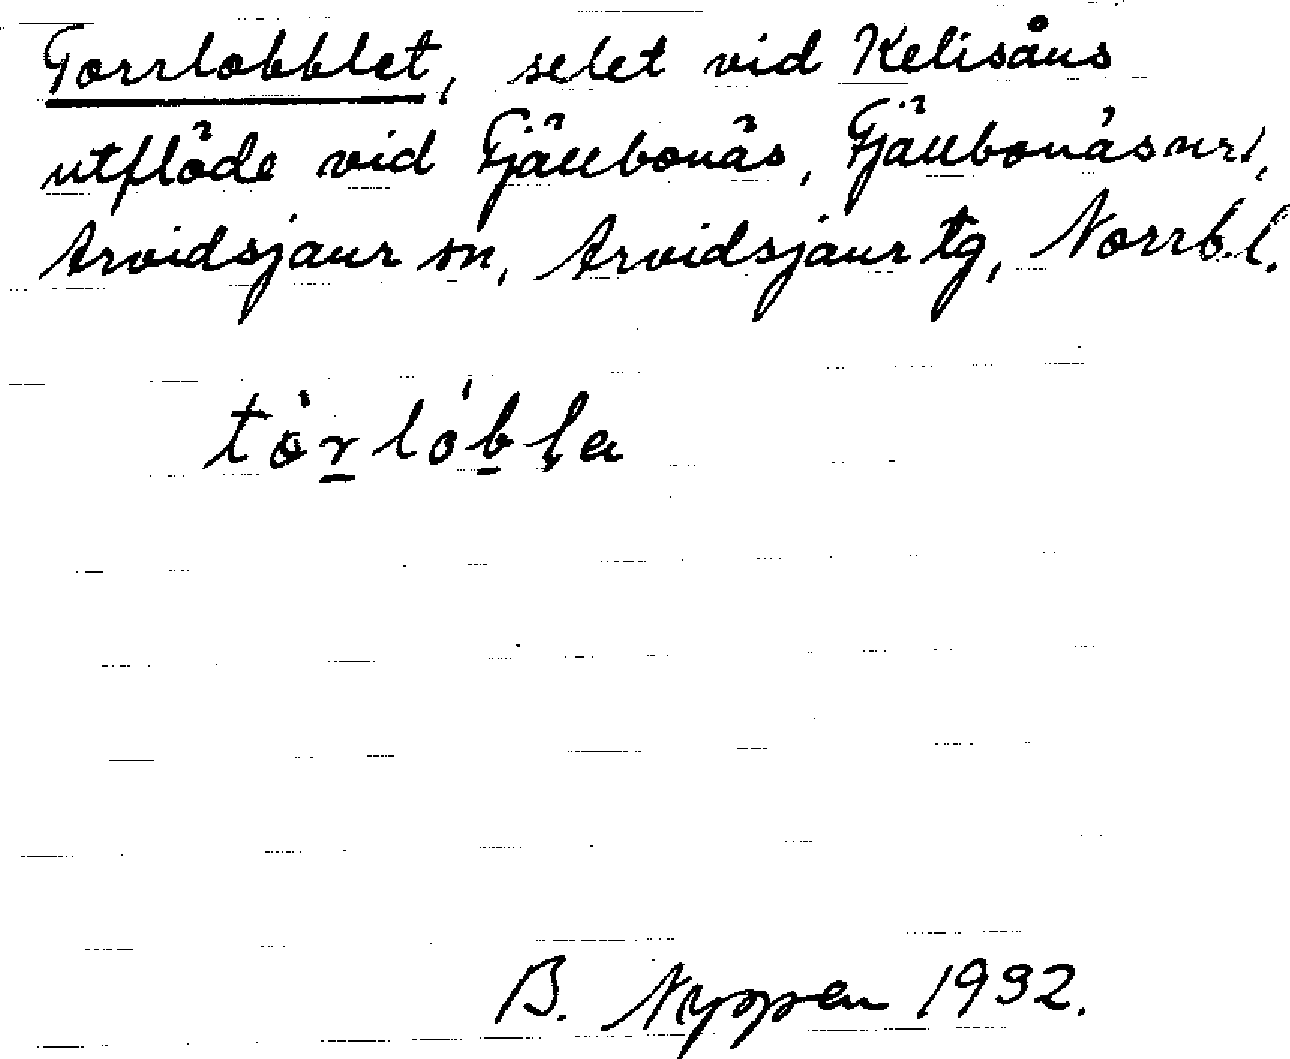 Torrlobblet, selet vid Kelisåns
utflöde vid Fjällbonäs, Fjällbonäs nr 1,
Arvidsjaur sn, Arvidsjaur tg, Norrb. l.
tòr̲lób̲l̥a
B. Nyppen 1932.